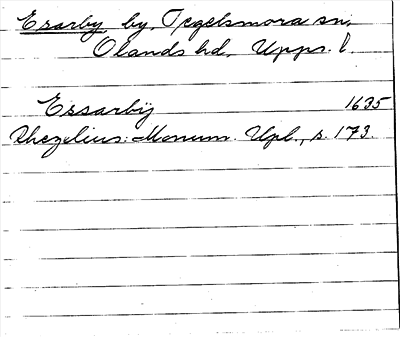 Esarby by, Tegelsmora sn,
Olands hd, Upps. l.
Essarbÿ 1635
Rhezelius: Monum. Upl., s. 173.